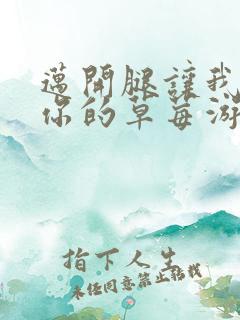 邁開腿讓我
你的草莓游
指下人生
未经同意禁止转载